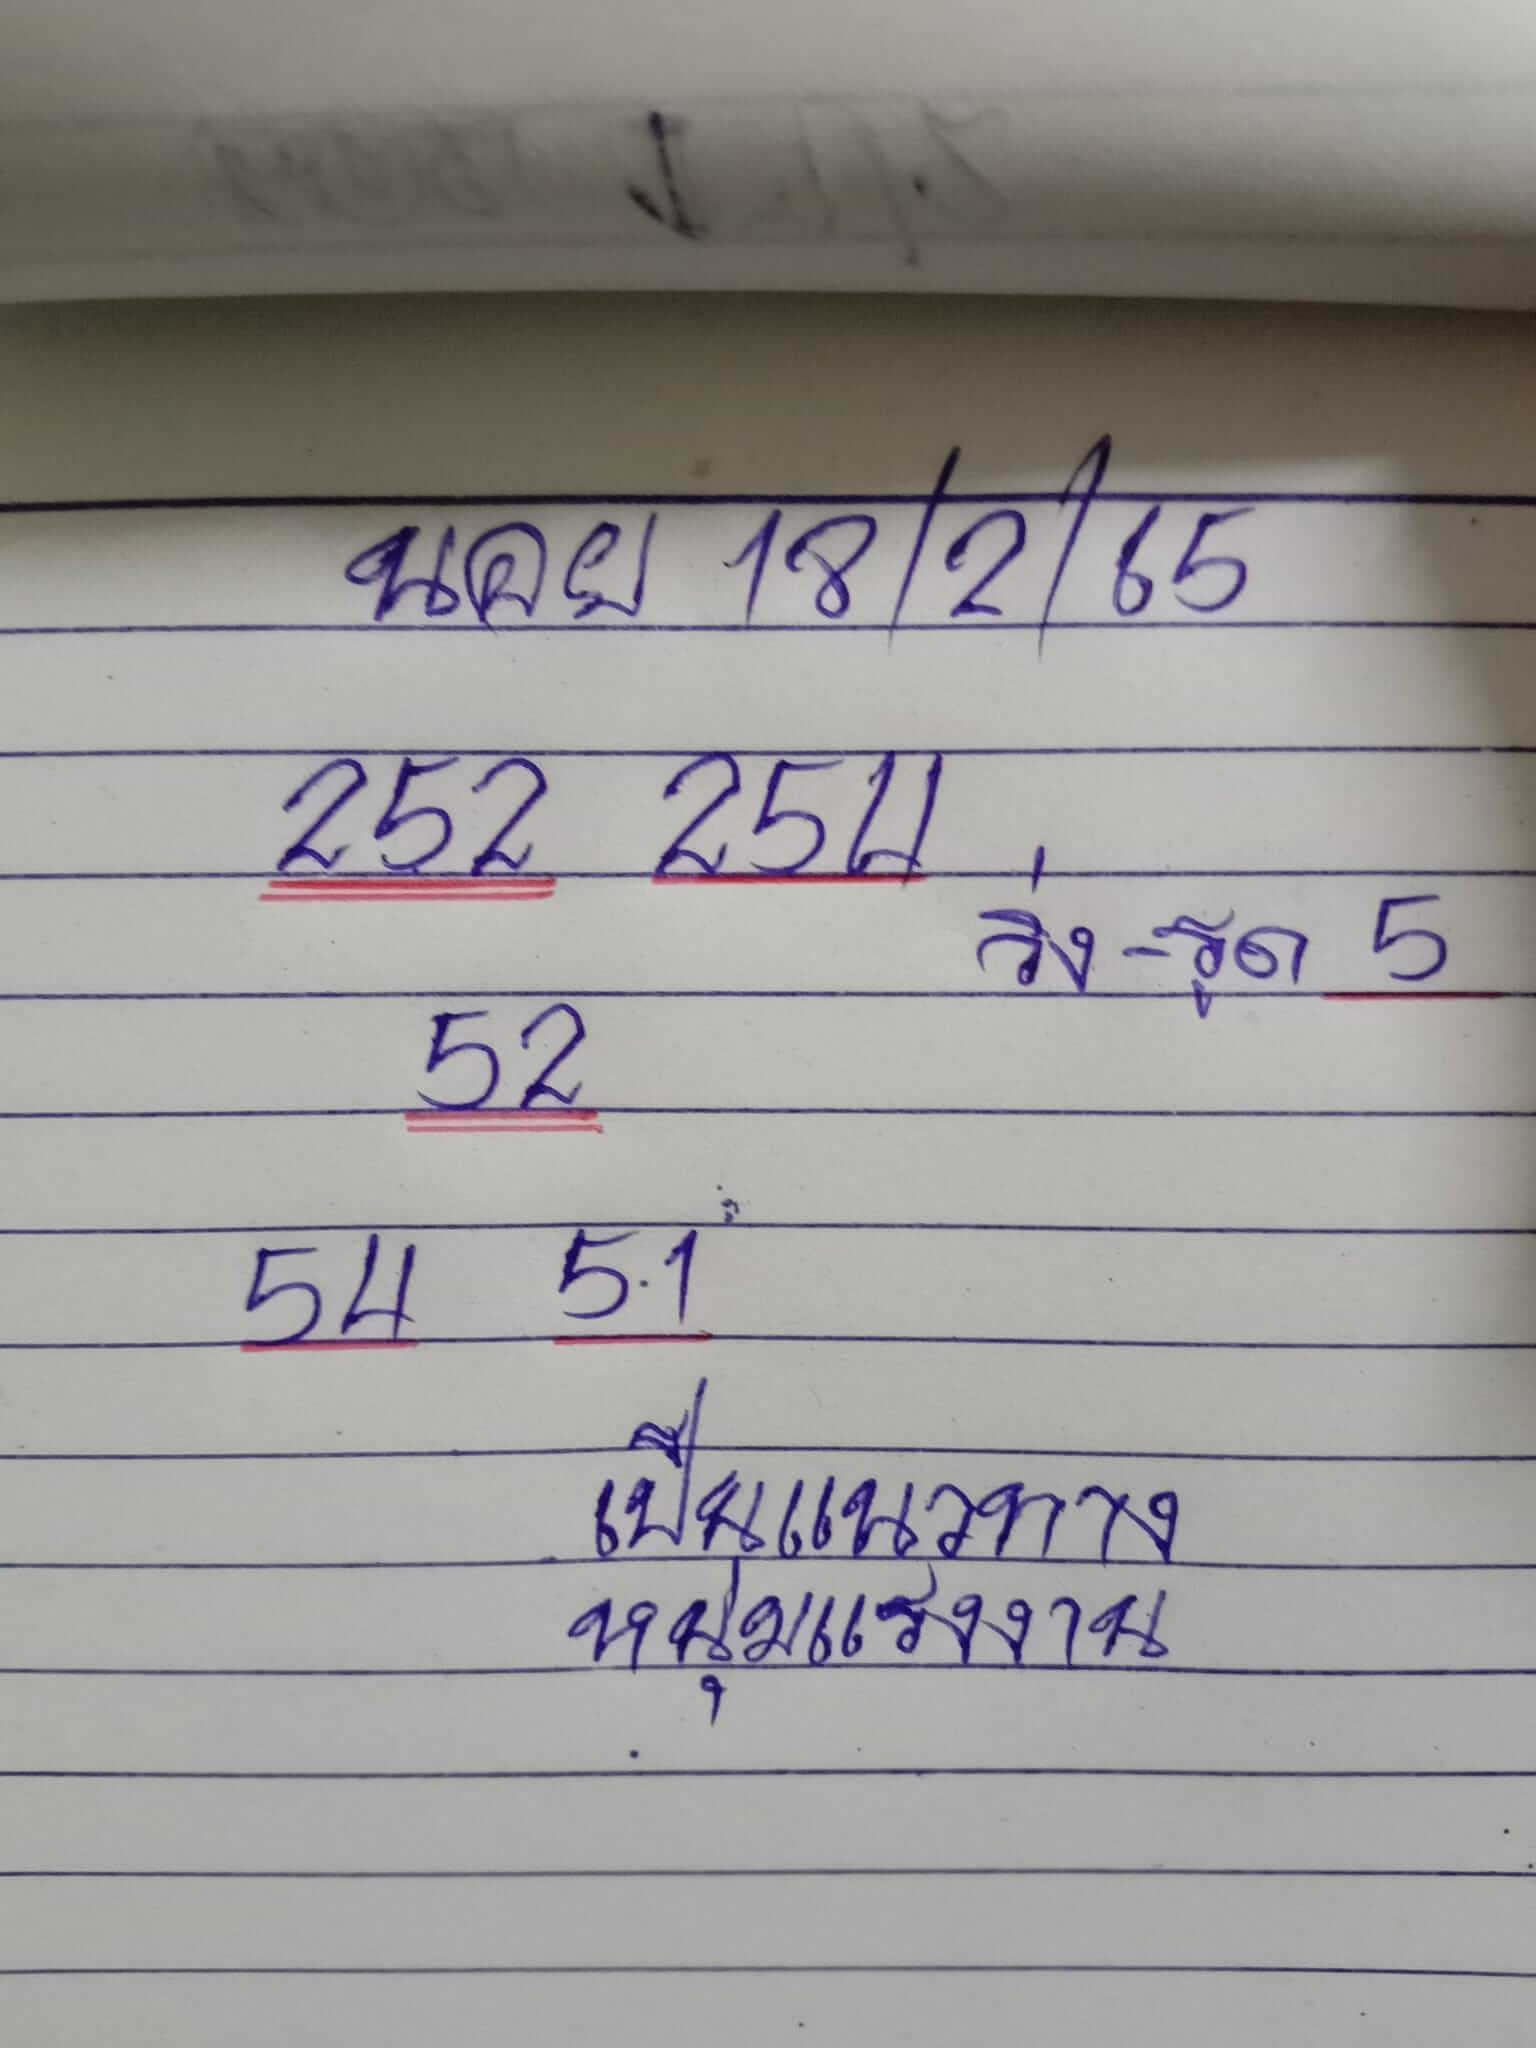 นอย 18/2/65
252 254
วิ่ง-รูด 5
52
54 51
เป็นแนวทาง
หนุ่มแรงงาน